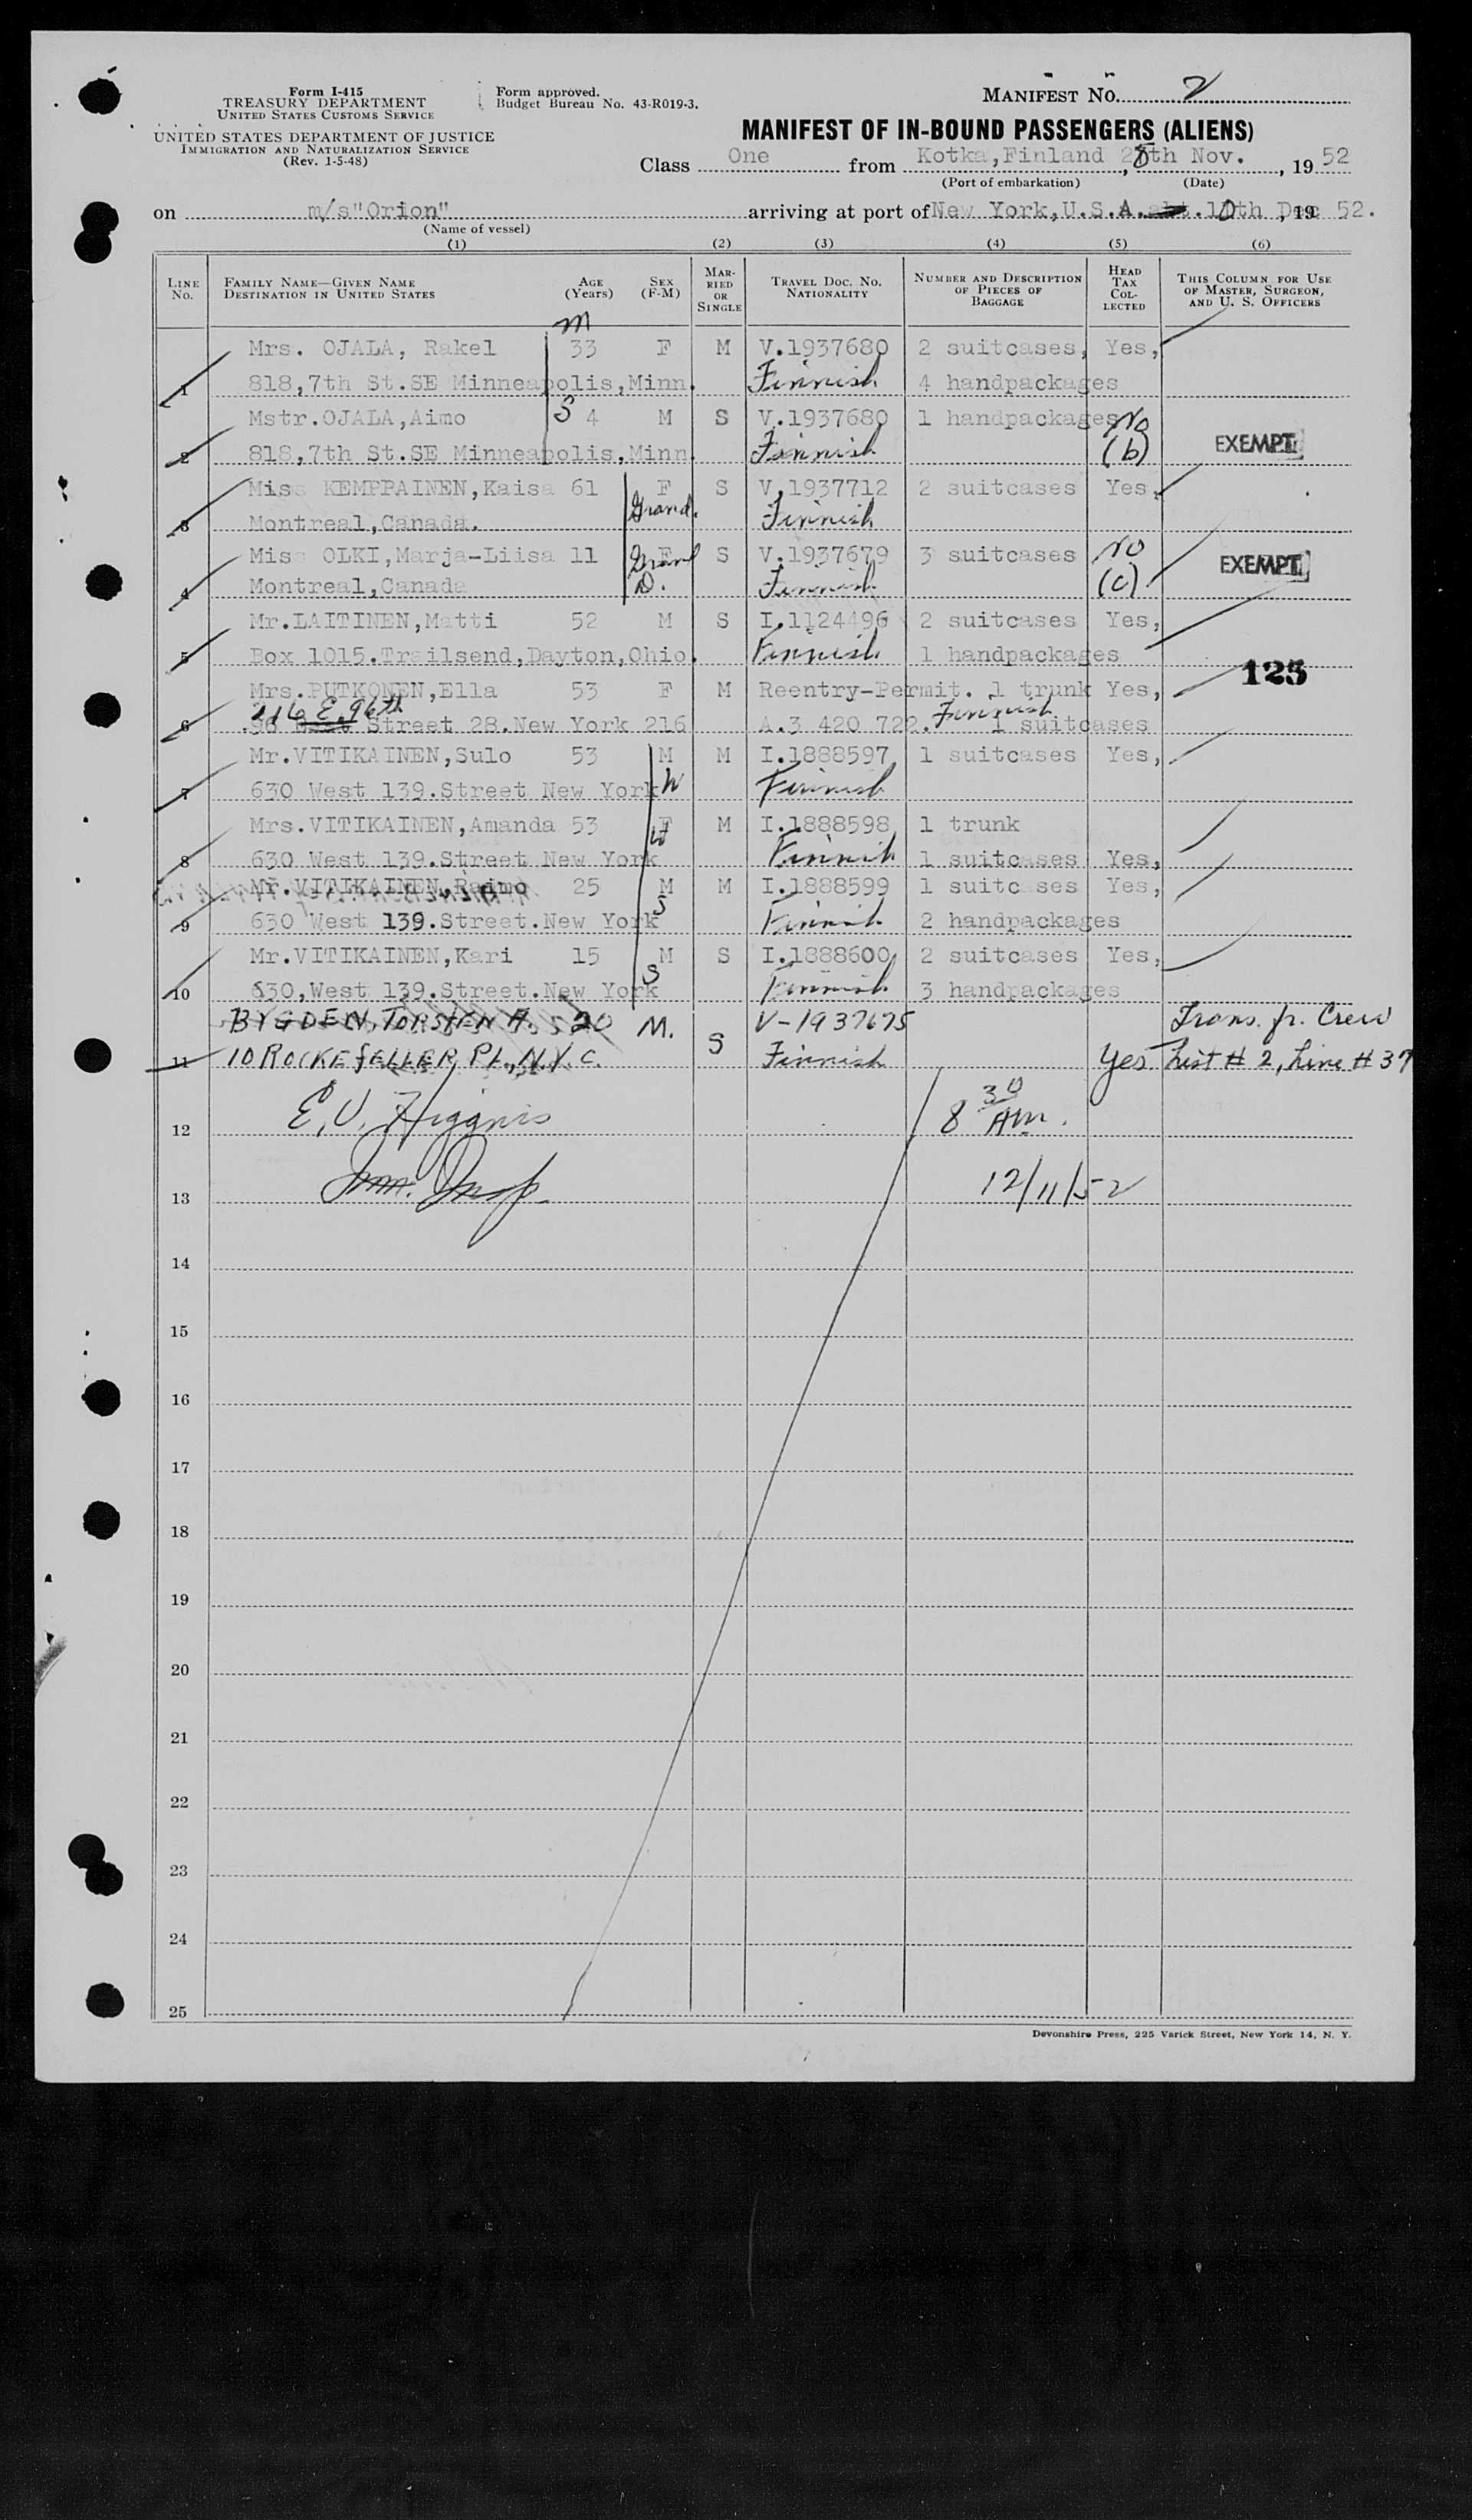 Form I-415
TREASURY DEPARTMENT
UNITED STATES CUSTOMS SERVICE
UNITED STATES DEPARTMENT OF JUSTICE
IMMIGRATION AND NATURALIZATION SERVICE
(Rev. 1-5-48)
Form approved.
Budget Bureau No. 43-R019-3.
MANIFEST NO. 2
MANIFEST OF IN-BOUND PASSENGERS (ALIENS)
Class One from Kotka, Finland, 28th Nov., 1952
(Port of embarkation) (Date)
on m/s "Orion" arriving at port of New York, U.S.A. 10th Dec, 19 52.
(Name of vessel)
(1) (2) (3) (4) (5) (6)
LINE NO. FAMILY NAME—GIVEN NAME DESTINATION IN UNITED STATES AGE (Years) SEX (F-M) MARRIED OR SINGLE TRAVEL DOC. NO. NATIONALITY NUMBER AND DESCRIPTION OF PIECES OF BAGGAGE HEAD TAX COLLECTED THIS COLUMN FOR USE OF MASTER, SURGEON, AND U. S. OFFICERS
m
Mrs. OJALA, Rakel 33 F M V.1937680 2 suitcases, Yes,
1 818,7th St.SE Minneapolis,Minn. Finnish 4 handpackages
Mstr.OJALA,Aimo S 4 M S V.1937680 1 handpackages No
2 818,7th St.SE Minneapolis.Minn Finnish (b) EXEMPT
Miss KEMPPAINEN,Kaisa 61 F S V.1937712 2 suitcases Yes.
3 Montreal,Canada. Grand. Finnish
Miss OLKI,Marja-Liisa 11 F Grand S V.1937679 3 suitcases No
4 Montreal,Canada D. Finnish (c) EXEMPT
Mr.LAITINEN,Matti 52 M S I.1124496 2 suitcases Yes,
5 Box 1015.Trailsend,Dayton,Ohio. Finnish 1 handpackages
125
Mrs.PUTKONEN,Ella 53 F M Reentry-Permit. 1 trunk Yes,
216 E. 96th Finnish
6 .96 East Street 28.New York 216 A.3 420 722. 1 suitcases
Mr.VITIKAINEN,Sulo 53 M M I.1888597 1 suitcases Yes,
7 630 West 139.Street New York H Finnish
Mrs.VITIKAINEN,Amanda 53 F M I.1888598 1 trunk
8 630 West 139.Street New York W Finnish 1 suitcases Yes,
Mr.VITIKAINEN,Raimo 25 M M I.1888599 1 suitcases Yes,
9 630 West 139.Street.New York S Finnish 2 handpackages
Mr.VITIKAINEN,Kari 15 M S I.1888600 2 suitcases Yes,
10 630,West 139.Street.New York S Finnish 3 handpackages
BYGDEN, TORSTEN H. 20 M. V-1937675 Trans. fr. Crew
11 10 ROCKEfELLER PL., N.Y.C. S Finnish Yes List # 2, Line # 37
E. V. Higgins 8 30 AM.
12
Imm. Insp. 12/11/52
13
14
15
16
17
18
19
20
21
22
23
24
25
Devonshire Press, 225 Varick Street, New York 14, N. Y.